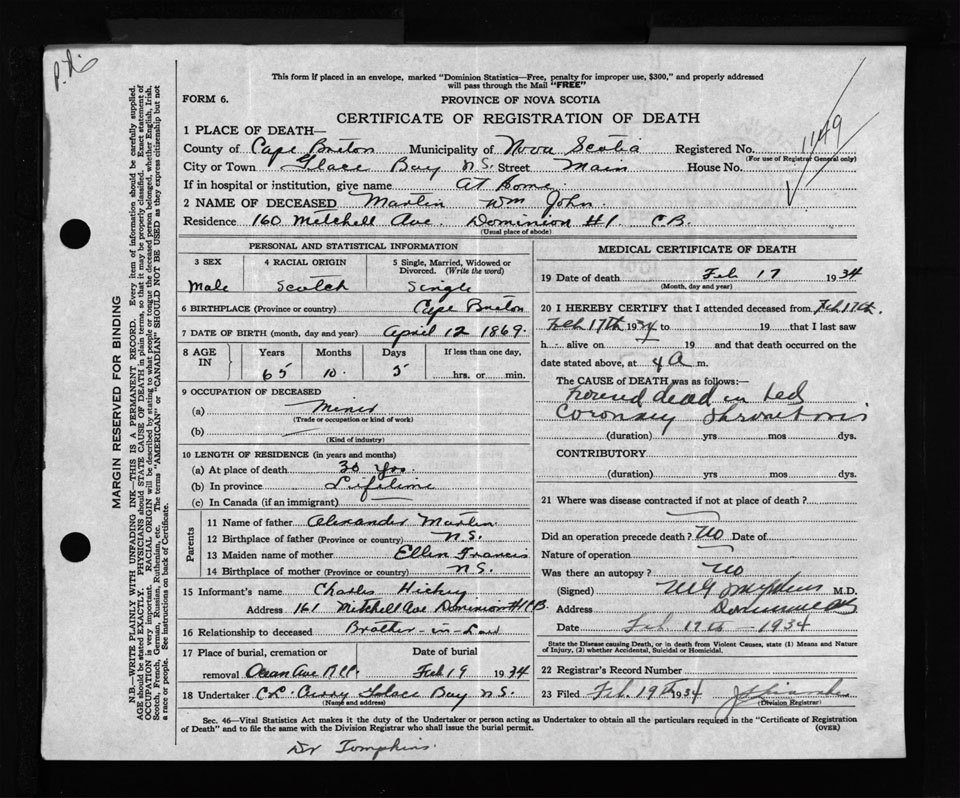 This form if placed in an envelope, marked "Dominion Statistics—Free, penalty for improper use, $300," and properly addressed
will pass through the Mail "FREE"
FORM 6.
PROVINCE OF NOVA SCOTIA
CERTIFICATE OF REGISTRATION OF DEATH
1149
1 PLACE OF DEATH—
County of Cape Breton Municipality of Nova Scotia Registered No.
(For use of Registrar General only)
City or Town Glace Bay N.S. Street Main House No.
If in hospital or institution, give name at Home.
2 NAME OF DECEASED Martin Wm John.
Residence 160 Mitchell Ave. Dominion #1. C.B.
(Usual place of abode)
PERSONAL AND STATISTICAL INFORMATION
3 SEX 4 RACIAL ORIGIN 5 Single, Married, Widowed or
Divorced. (Write the word)
Male Scotch Single
6 BIRTHPLACE (Province or country) Cape Breton
7 DATE OF BIRTH (month, day and year) April 12 1869.
8 AGE IN Years Months Days If less than one day,
65 10. 5 hrs. or min.
9 OCCUPATION OF DECEASED
(a) Miner
(Trade or occupation or kind of work)
(b)
(Kind of industry)
10 LENGTH OF RESIDENCE (in years and months)
(a) At place of death 30 Yrs.
(b) In province Lifetime
(c) In Canada (if an immigrant)
Parents
11 Name of father Alexander Martin
12 Birthplace of father (Province or country) N.S.
13 Maiden name of mother Ellen Francis
14 Birthplace of mother (Province or country) N.S.
15 Informant's name Charles Hickey
Address 161 Mitchell Ave Dominion #1 C.B.
16 Relationship to deceased Brother-in-Law
17 Place of burial, cremation or Date of burial
removal Ocean Ave N.S. Feb 19 1934
18 Undertaker C.L. Curry Glace Bay N.S.
(Name and address)
MEDICAL CERTIFICATE OF DEATH
19 Date of death Feb 17 1934
(Month, day and year)
20 I HEREBY CERTIFY that I attended deceased from Feb 17th.
Feb 17th 1934 to 19 that I last saw
h alive on 19 and that death occurred on the
date stated above, at 4 A m.
The CAUSE OF DEATH was as follows:—
Found dead in bed
Coronary Thrombosis
(duration) yrs mos dys.
CONTRIBUTORY
(duration) yrs mos dys.
21 Where was disease contracted if not at place of death?
Did an operation precede death? No Date of
Nature of operation
Was there an autopsy? No
(Signed) M.D.
Address Dominion
Date Feb 17th - 1934
State the Disease causing Death, or in death from Violent Causes, state (1) Means and Nature
of Injury, (2) whether Accidental, Suicidal or Homicidal.
22 Registrar's Record Number
23 Filed Feb. 19th 1934
(Division Registrar)
Sec. 46—Vital Statistics Act makes it the duty of the Undertaker or person acting as Undertaker to obtain all the particulars required in the "Certificate of Registration
of Death" and to file the same with the Division Registrar who shall issue the burial permit. (OVER)
Dr Tompkins.
MARGIN RESERVED FOR BINDING
N.B.—WRITE PLAINLY WITH UNFADING INK—THIS IS A PERMANENT RECORD. Every item of information should be carefully supplied.
AGE should be stated EXACTLY. PHYSICIANS should STATE CAUSE OF DEATH in plain terms, so that it may be properly classified. Exact statement of
OCCUPATION is very important. RACIAL ORIGIN will be described by stating to what people or tongue the deceased person belonged, whether English, Irish,
Scotch, French, German, Russian, Ruthenian, etc. The terms "AMERICAN" or "CANADIAN" SHOULD NOT BE USED as they express citizenship but not
a race or people. See instructions on back of Certificate.